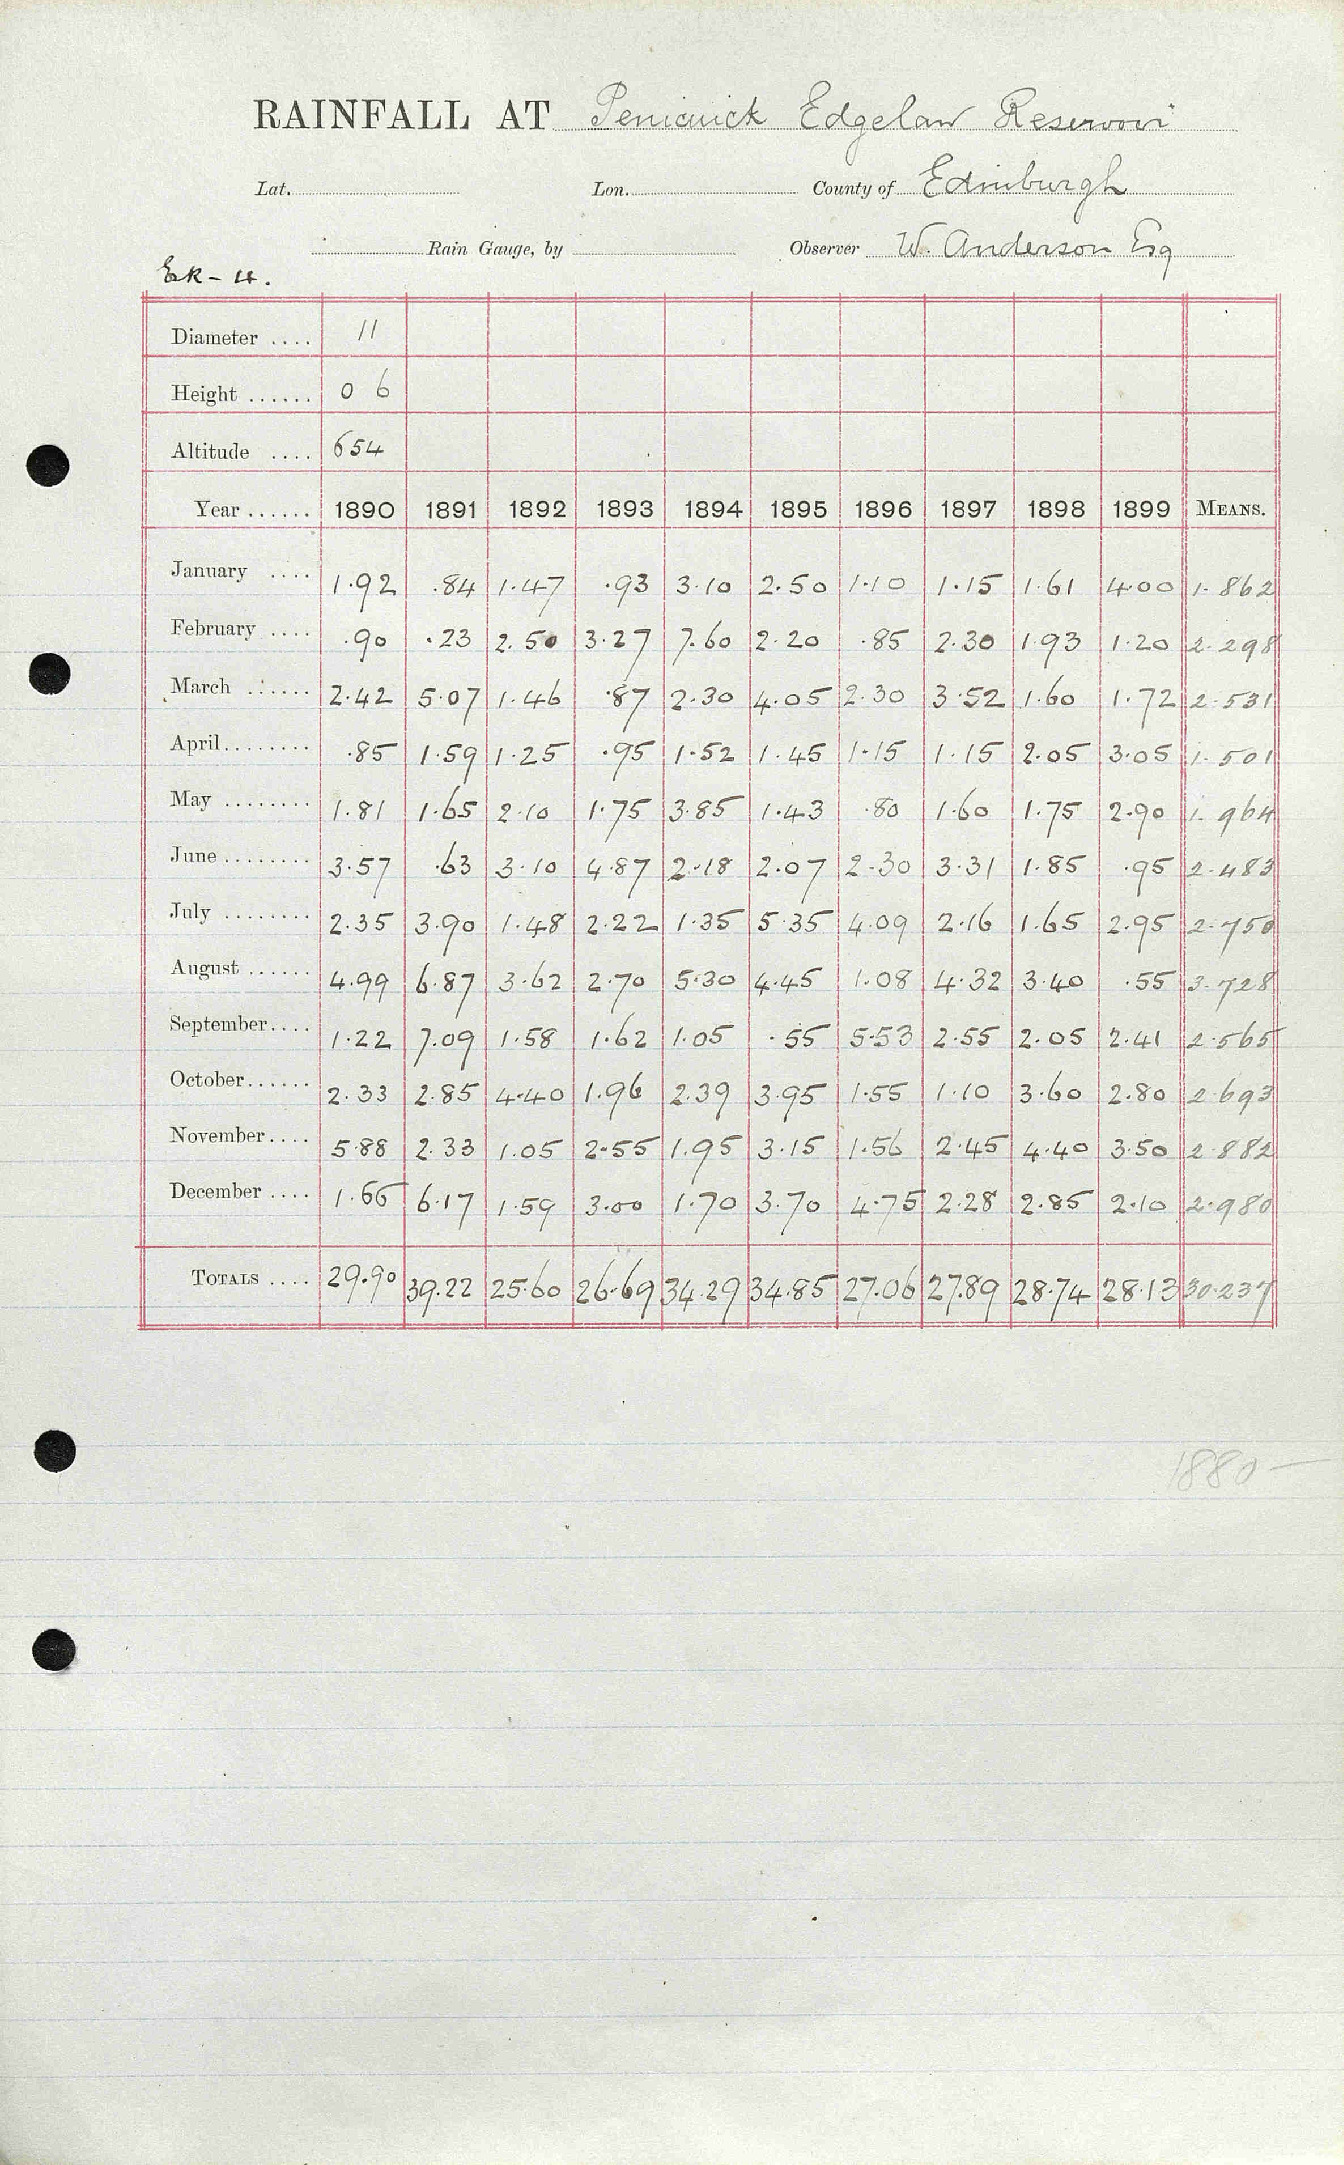 RAINFALL AT Penicuick Edgelaw Reservoir
Lat. Lon. County of Edinburgh
Rain Gauge, by Observer W. Anderson Esq
Diameter .... 11
Height ...... 0 6
Altitude .... 654
Year ...... 1890 1891 1892 1893 1894 1895 1896 1897 1898 1899 MEANS.
January .... 1.92 .84 1.47 .93 3.10 2.50 1.10 1.15 1.61 4.00 1.862
February .... .90 .23 2.50 3.27 7.60 2.20 .85 2.30 1.93 1.20 2.298
March ...... 2.42 5.07 1.46 .87 2.30 4.05 2.30 3.52 1.60 1.72 2.531
April ........ .85 1.59 1.25 .95 1.52 1.45 1.15 1.15 2.05 3.05 1.501
May ........ 1.81 1.65 2.10 1.75 3.85 1.43 .80 1.60 1.75 2.90 1.964
June ........ 3.57 .63 3.10 4.87 2.18 2.07 2.30 3.31 1.85 .95 2.483
July ........ 2.35 3.90 1.48 2.22 1.35 5.35 4.09 2.16 1.65 2.95 2.750
August ...... 4.99 6.87 3.62 2.70 5.30 4.45 1.08 4.32 3.40 .55 3.728
September .... 1.22 7.09 1.58 1.62 1.05 .55 5.53 2.55 2.05 2.41 2.565
October ...... 2.33 2.85 4.40 1.96 2.39 3.95 1.55 1.10 3.60 2.80 2.693
November .... 5.88 2.33 1.05 2.55 1.95 3.15 1.56 2.45 4.40 3.50 2.882
December .... 1.66 6.17 1.59 3.00 1.70 3.70 4.75 2.28 2.85 2.10 2.980
TOTALS .... 29.90 39.22 25.60 26.69 34.29 34.85 27.06 27.89 28.74 28.13 30.237
1880 —